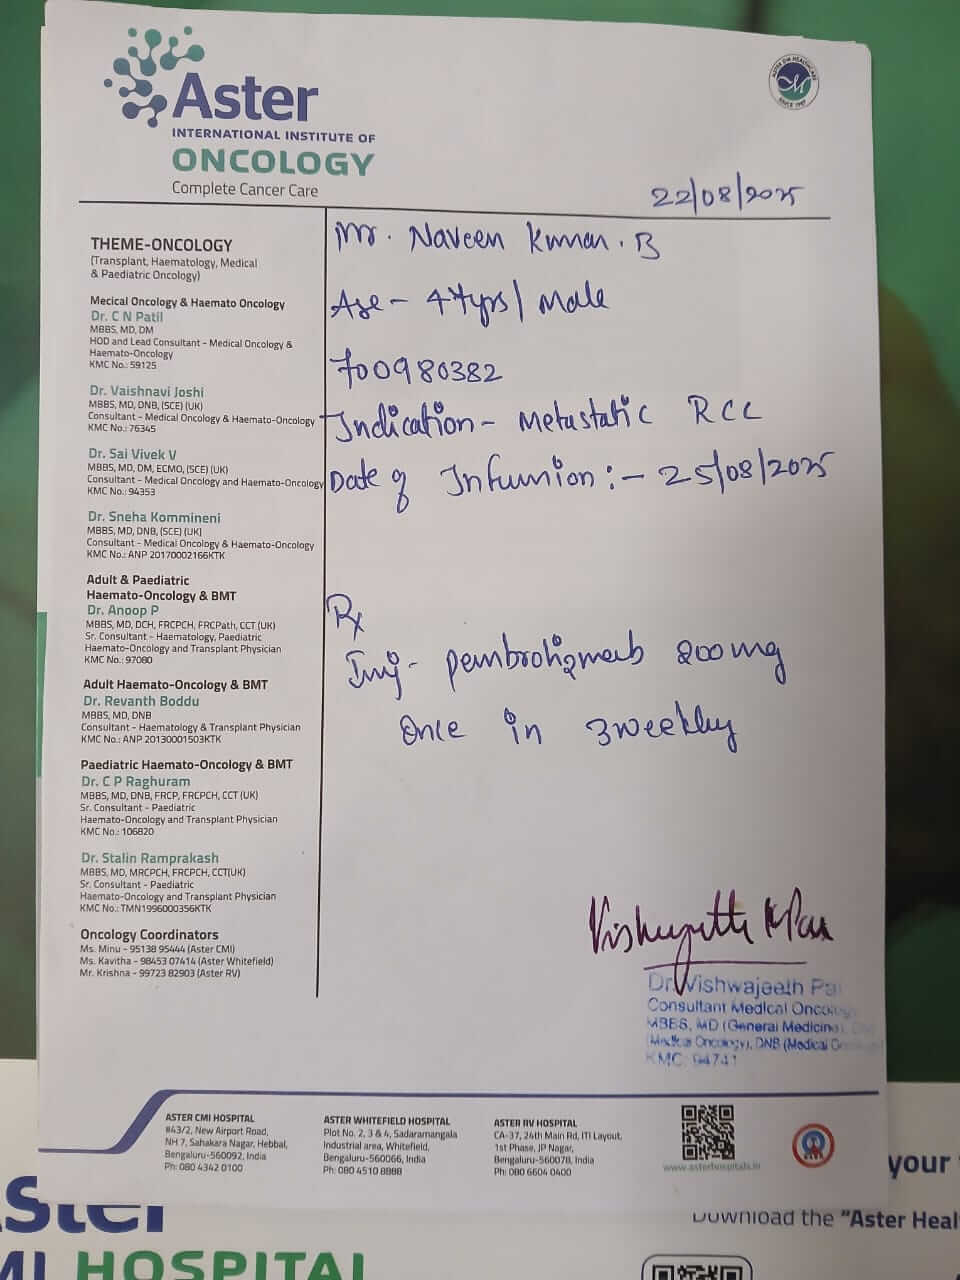 Aster
INTERNATIONAL INSTITUTE OF
ONCOLOGY
Complete Cancer Care
ASTER DM HEALTHCARE
SINCE 1987
22/08/2025
THEME-ONCOLOGY
(Transplant, Haematology, Medical
& Paediatric Oncology)
Mecical Oncology & Haemato Oncology
Dr. C N Patil
MBBS, MD, DM
HOD and Lead Consultant - Medical Oncology &
Haemato-Oncology
KMC No.: 59125
Dr. Vaishnavi Joshi
MBBS, MD, DNB, (SCE) (UK)
Consultant - Medical Oncology & Haemato-Oncology
KMC No.: 76345
Dr. Sai Vivek V
MBBS, MD, DM, ECMO, (SCE) (UK)
Consultant - Medical Oncology and Haemato-Oncology
KMC No.: 94353
Dr. Sneha Kommineni
MBBS, MD, DNB, (SCE) (UK)
Consultant - Medical Oncology & Haemato-Oncology
KMC No.: ANP 20170002166KTK
Adult & Paediatric
Haemato-Oncology & BMT
Dr. Anoop P
MBBS, MD, DCH, FRCPCH, FRCPath, CCT (UK)
Sr. Consultant - Haematology, Paediatric
Haemato-Oncology and Transplant Physician
KMC No.: 97080
Adult Haemato-Oncology & BMT
Dr. Revanth Boddu
MBBS, MD, DNB
Consultant - Haematology & Transplant Physician
KMC No.: ANP 20130001503KTK
Paediatric Haemato-Oncology & BMT
Dr. C P Raghuram
MBBS, MD, DNB, FRCP, FRCPCH, CCT (UK)
Sr. Consultant - Paediatric
Haemato-Oncology and Transplant Physician
KMC No.: 106820
Dr. Stalin Ramprakash
MBBS, MD, MRCPCH, FRCPCH, CCT(UK)
Sr. Consultant - Paediatric
Haemato-Oncology and Transplant Physician
KMC No.: TMN1996000356KTK
Oncology Coordinators
Ms. Minu - 95138 95444 (Aster CMI)
Ms. Kavitha - 98453 07414 (Aster Whitefield)
Mr. Krishna - 99723 82903 (Aster RV)
Mr. Naveen Kumar. B
Age - 47yrs/ Male
700980382
Indication - Metastatic RCC
Date of Infumion :- 25/08/2025
Rx
Inj - pembrolizmab 200 mg
Once in 3 weekly
Dr. Vishwajeeth Pai
Consultant Medical Oncology
MBBS, MD (General Medicine),
(Medical Oncology), DNB (Medical Oncology)
KMC: 94741
ASTER CMI HOSPITAL
#43/2, New Airport Road,
NH 7, Sahakara Nagar, Hebbal,
Bengaluru-560092, India
Ph: 080 4342 0100
ASTER WHITEFIELD HOSPITAL
Plot No. 2, 3 & 4, Sadaramangala
Industrial area, Whitefield,
Bengaluru-560066, India
Ph: 080 4510 8888
ASTER RV HOSPITAL
CA-37, 24th Main Rd, ITI Layout,
1st Phase, JP Nagar,
Bengaluru-560078, India
Ph: 080 6604 0400
www.asterhospitals.in
your
Download the "Aster Heal
Aster
MI HOSPITAL